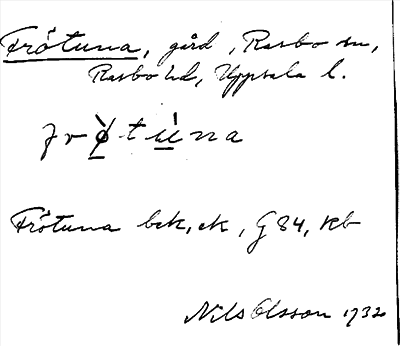 Frötuna, gård, Rasbo sn,
Rasbo hd, Uppsala l.
frø̀tùna
Frötuna bek, ek, G 84, kb
Nils Olsson 1932